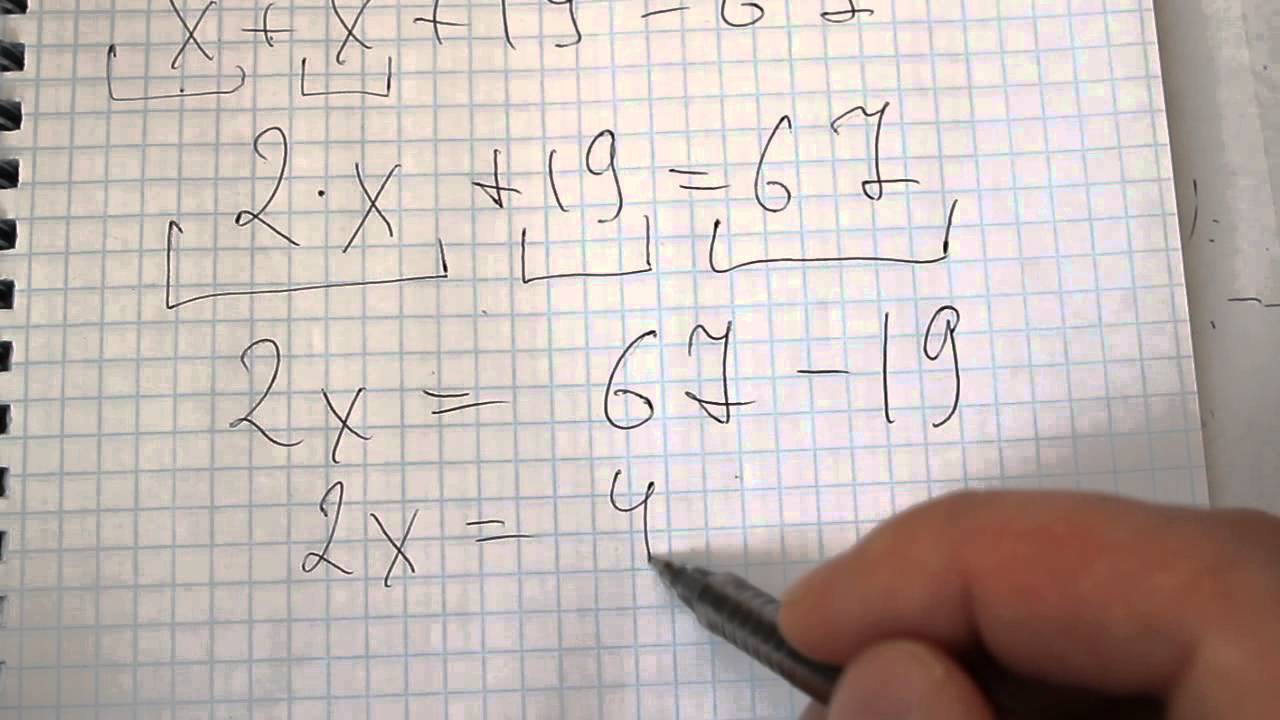 x + x + 19 = 67
2·x + 19 = 67
2x = 67 - 19
2x = 4